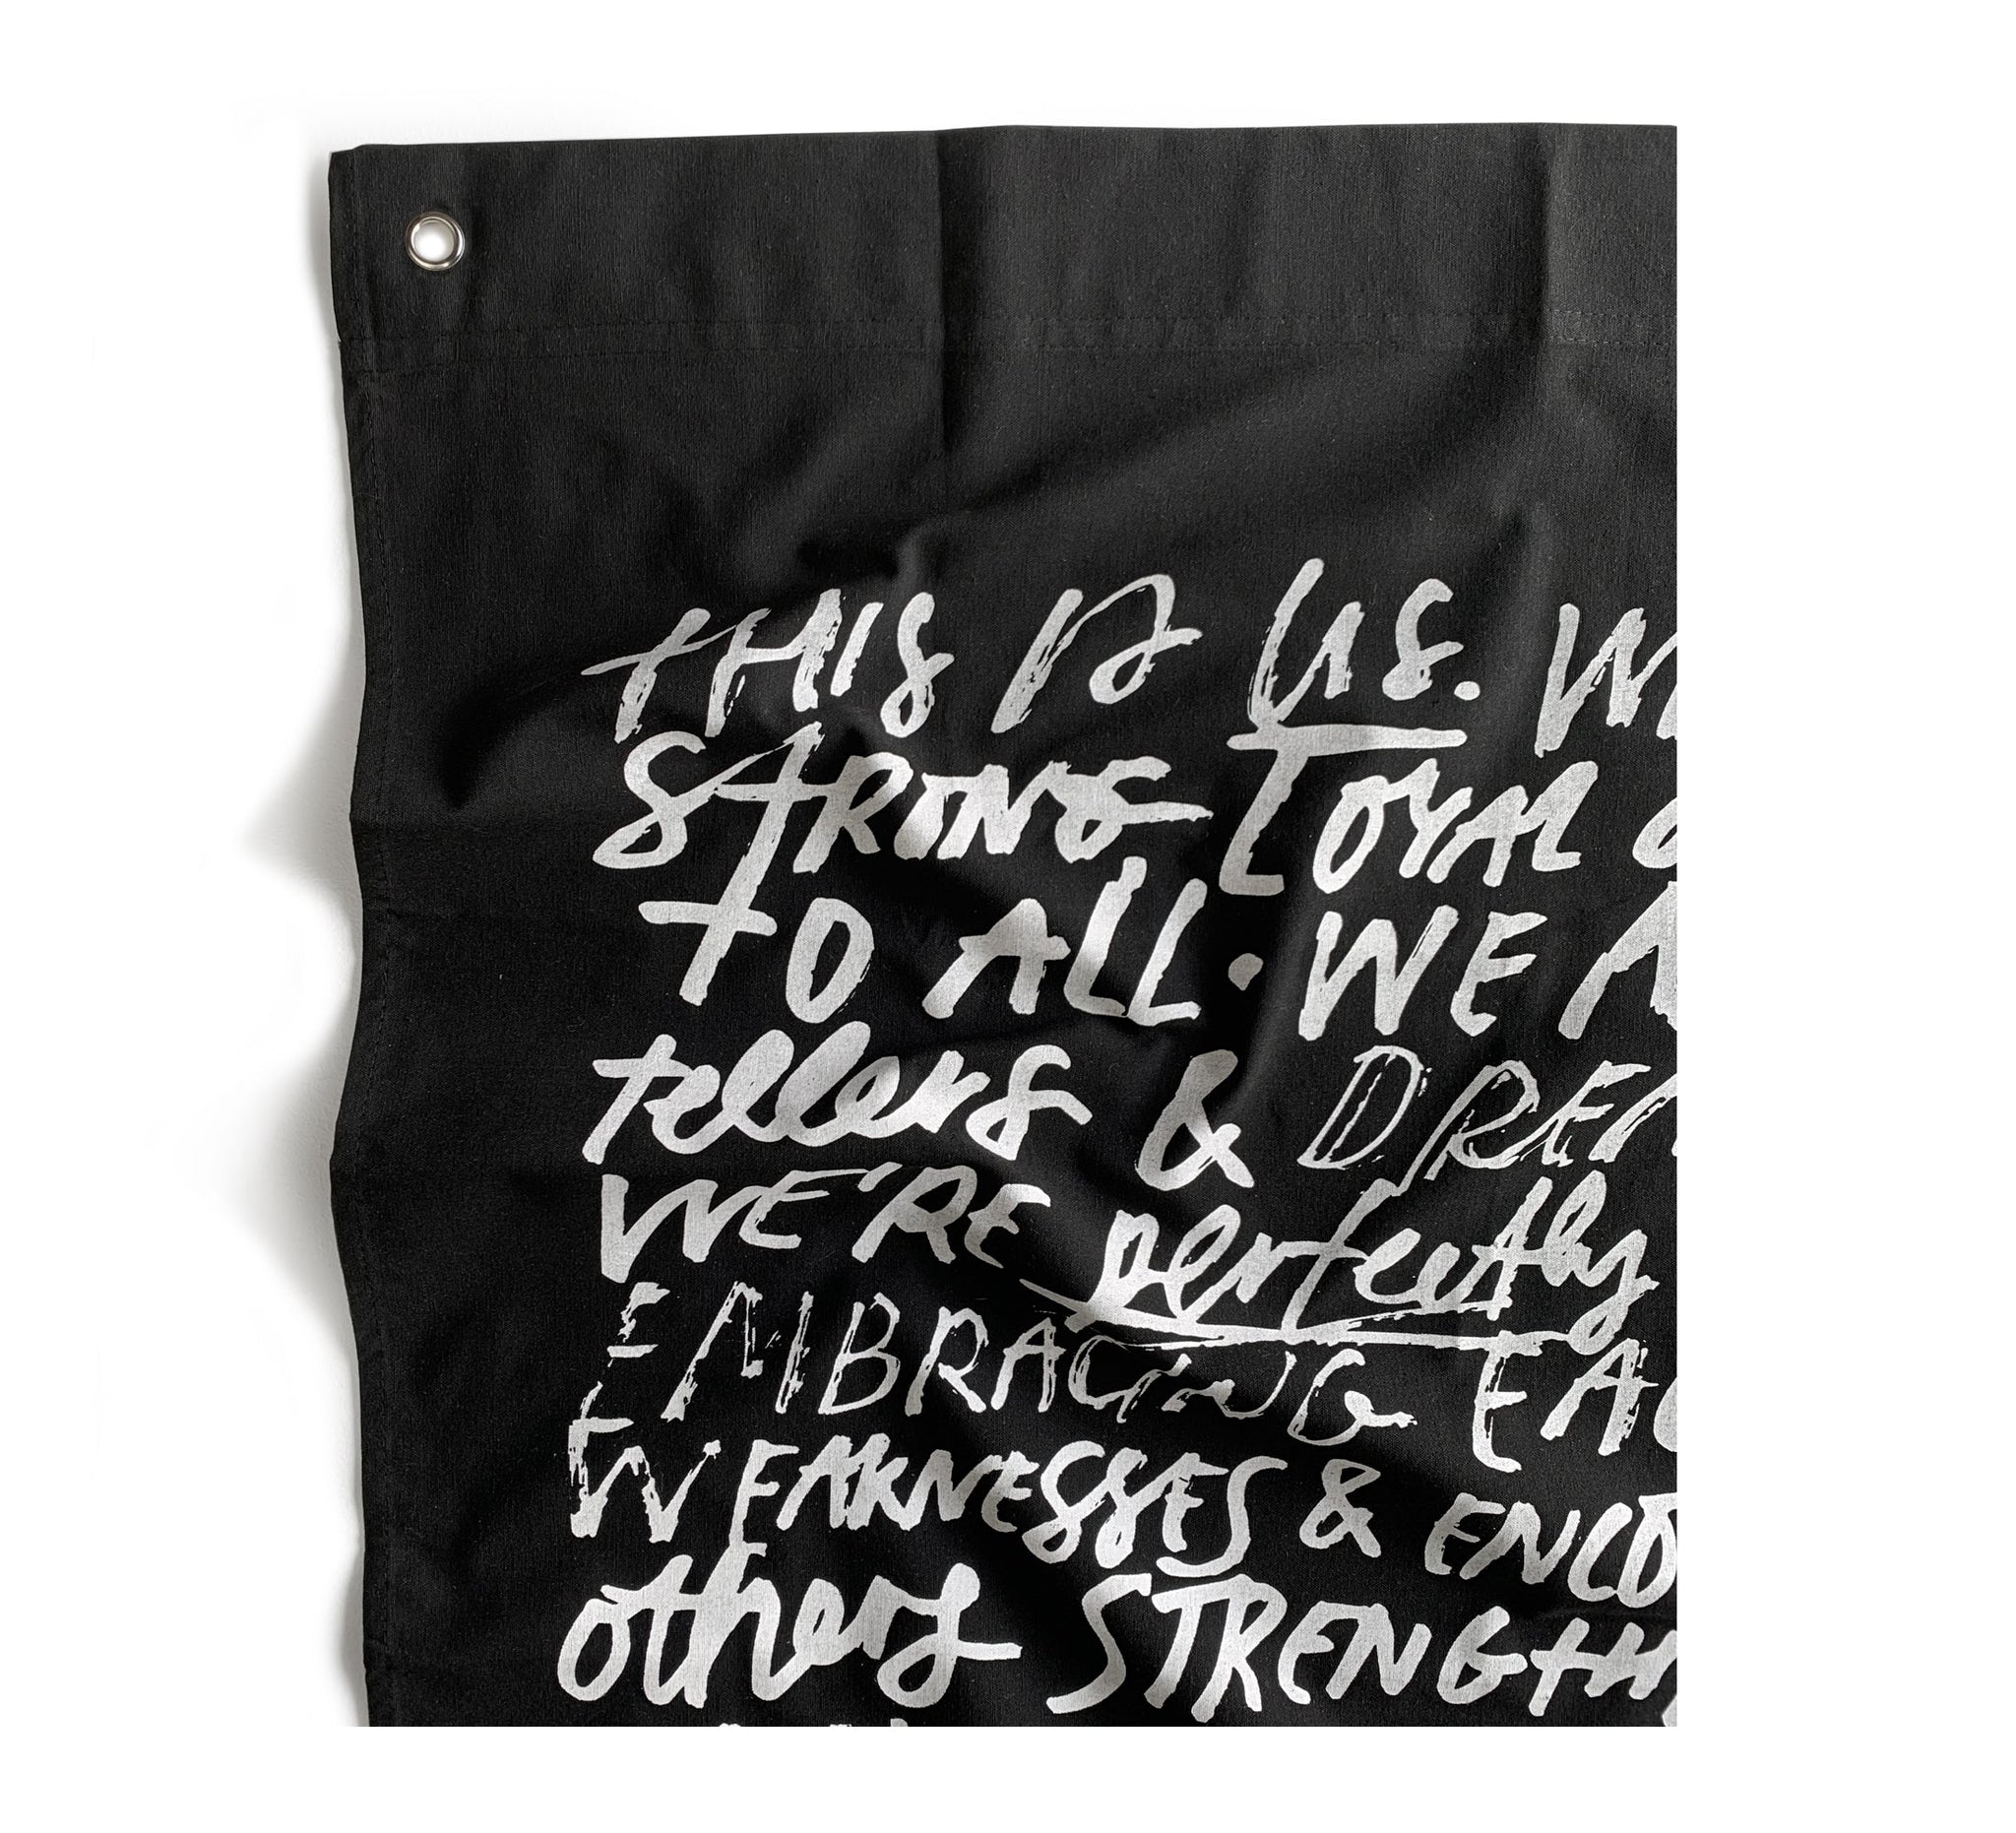 THIS IS US. W
STRONG LOYAL
TO ALL. WE A
tellers & DREA
WE'RE perfectly
EMBRACING EAC
WEAKNESSES & ENCO
others STRENGTH